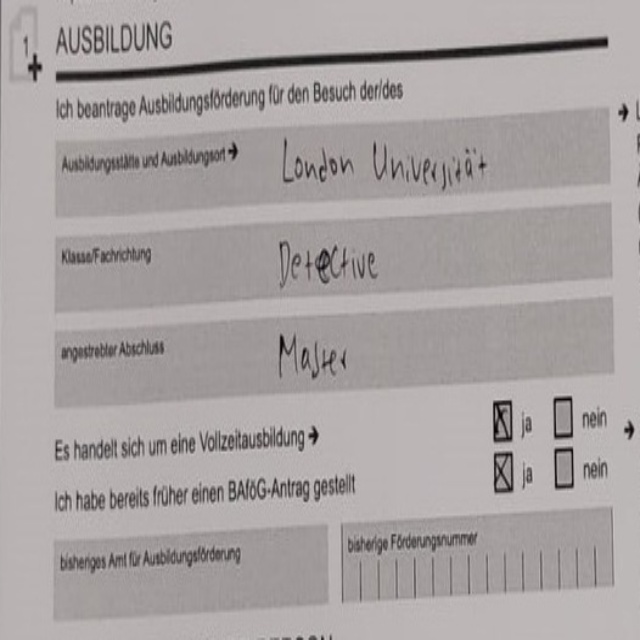 1
AUSBILDUNG
Ich beantrage Ausbildungsförderung für den Besuch der/des
Ausbildungsstätte und Ausbildungsort → London Universität
Klasse/Fachrichtung Detective
angestrebter Abschluss Master
Es handelt sich um eine Vollzeitausbildung → ja nein
Ich habe bereits früher einen BAföG-Antrag gestellt ja nein
bisheriges Amt für Ausbildungsförderung bisherige Förderungsnummer